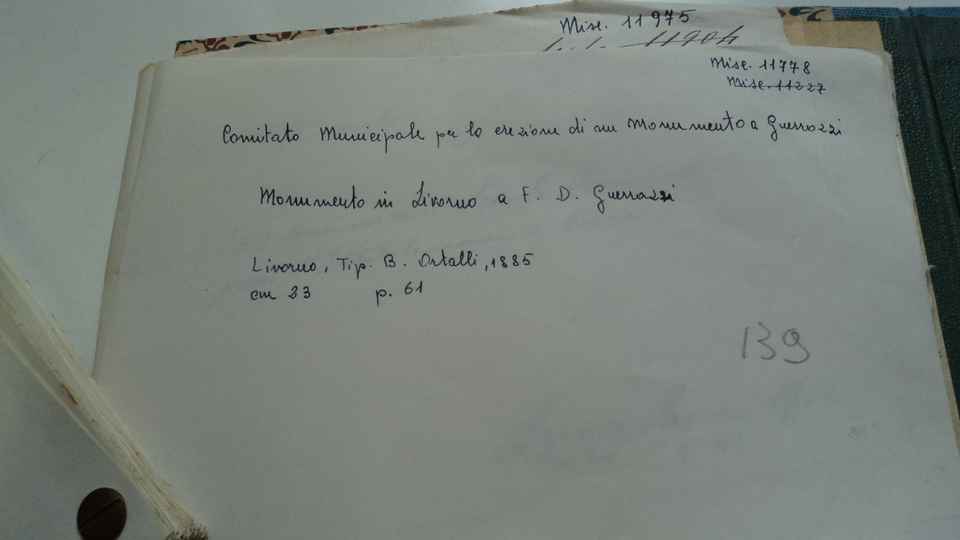 Misc. 11975
11904
Misc. 11778
Misc. 11227
Comitato Municipale per la erezione di un Monumento a Guerrazzi
Monumento in Livorno a F. D. Guerrazzi
Livorno, Tip. B. Ortalli, 1885
cm 23 p. 61
139